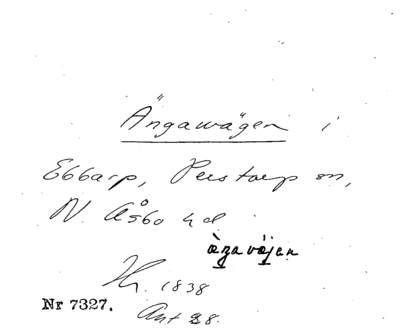 Ängawägen i
Ebbarp, Perstorp sn,
N. Åsbo hd
àgavájen
Hr. 1838
Nr 7327.
Ant 28.